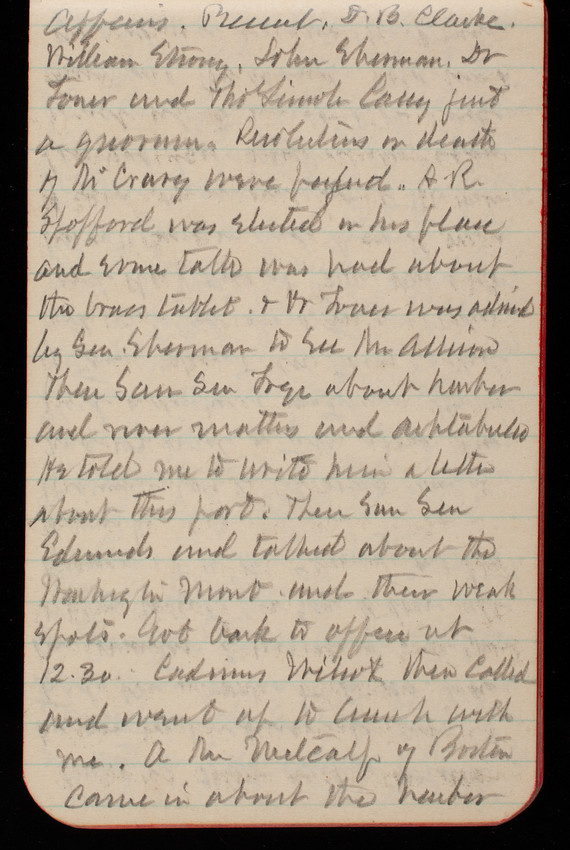 affairs. Present, D. B. Clarke.
William Strong, John Sherman, Dr
Toner and Tho Lincoln Casey just
a quorum. Resolutions on death
of Mr Crary were passed. A R.
Spofford was elected in his place
and some talk was had about
the brass tablet. & Dr Toner was advised
by Sen Sherman to see Mr Allison
Then saw Sen Frye about harbor
and river matters and Ashtabula
He told me to write him a letter
about this port. Then saw Sen
Edmunds and talked about the
Washington Mont and their weak
spots. Got back to office at
12.30. Cadmus Wilcox then called
and went up to lunch with
me. A Mr Metcalf of Boston
came in about the harbor